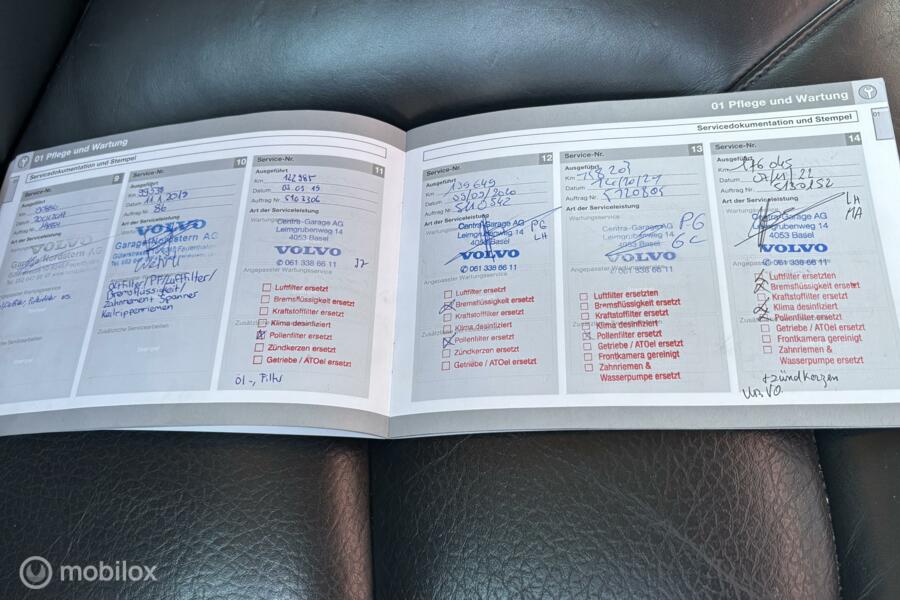 01 Pflege und Wartung
Servicedokumentation und Stempel
Service-Nr. 9
Ausgeführt
Km
Datum
Auftrag Nr.
Art der Serviceleistung
VOLVO
Garage Nordstern AG
Zusätzliche Servicearbeiten
Service-Nr. 10
Ausgeführt
Km
Datum
Auftrag Nr. 86
Art der Serviceleistung
VOLVO
Garage Nordstern AG
Ölfilter/PF/Luftfilter/
Bremsflüssigkeit/
Zahnriement Spanner
Keilrippenriemen
Zusätzliche Servicearbeiten
Service-Nr. 11
Ausgeführt
Km 122985
Datum 03.09.19
Auftrag Nr. 5103306
Art der Serviceleistung
Wartungsservice
Centra-Garage AG
Leimgrubenweg 14
4053 Basel
VOLVO
✆ 061 338 66 11
Angepasster Wartungsservice
Luftfilter ersetzt
Bremsflüssigkeit ersetzt
Kraftstoffilter ersetzt
Klima desinfiziert
Pollenfilter ersetzt
Zündkerzen ersetzt
Getriebe / ATOel ersetzt
Öl-, Filter
01 Pflege und Wartung
01
Servicedokumentation und Stempel
Service-Nr. 12
Ausgeführt
Km 139649
Datum
Auftrag Nr. 5110542
Art der Serviceleistung
Wartungsservice
Centra-Garage AG
Leimgrubenweg 14
4053 Basel
PG
LH
VOLVO
✆ 061 338 66 11
Angepasster Wartungsservice
Luftfilter ersetzt
Bremsflüssigkeit ersetzt
Kraftstoffilter ersetzt
Klima desinfiziert
Pollenfilter ersetzt
Zündkerzen ersetzt
Getriebe / ATOel ersetzt
Service-Nr. 13
Ausgeführt
Km 158207
Datum 14/10/21
Auftrag Nr. 5120805
Art der Serviceleistung
Wartungsservice
Centra-Garage AG
Leimgrubenweg 14
4053 Basel
PG
GC
VOLVO
✆ 061 338 66 11
Angepasster Wartungsservice
Luftfilter ersetzten
Bremsflüssigkeit ersetzt
Kraftstoffilter ersetzt
Klima desinfiziert
Pollenfilter ersetzt
Getriebe / ATOel ersetzt
Frontkamera gereinigt
Zahnriemen &
Wasserpumpe ersetzt
Service-Nr. 14
Ausgeführt
Km 176045
Datum
Auftrag Nr. 5130152
Art der Serviceleistung
Wartungsservice
LH
MA
Centra-Garage AG
Leimgrubenweg 14
4053 Basel
VOLVO
✆ 061 338 66 11
Angepasster Wartungsservice
Luftfilter ersetzten
Bremsflüssigkeit ersetzt
Kraftstoffilter ersetzt
Klima desinfiziert
Pollenfilter ersetzt
Getriebe / ATOel ersetzt
Frontkamera gereinigt
Zahnriemen &
Wasserpumpe ersetzt
+zündkerzen
mobilox